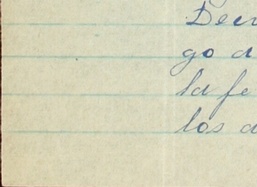 Decr
go a
la fe
los a